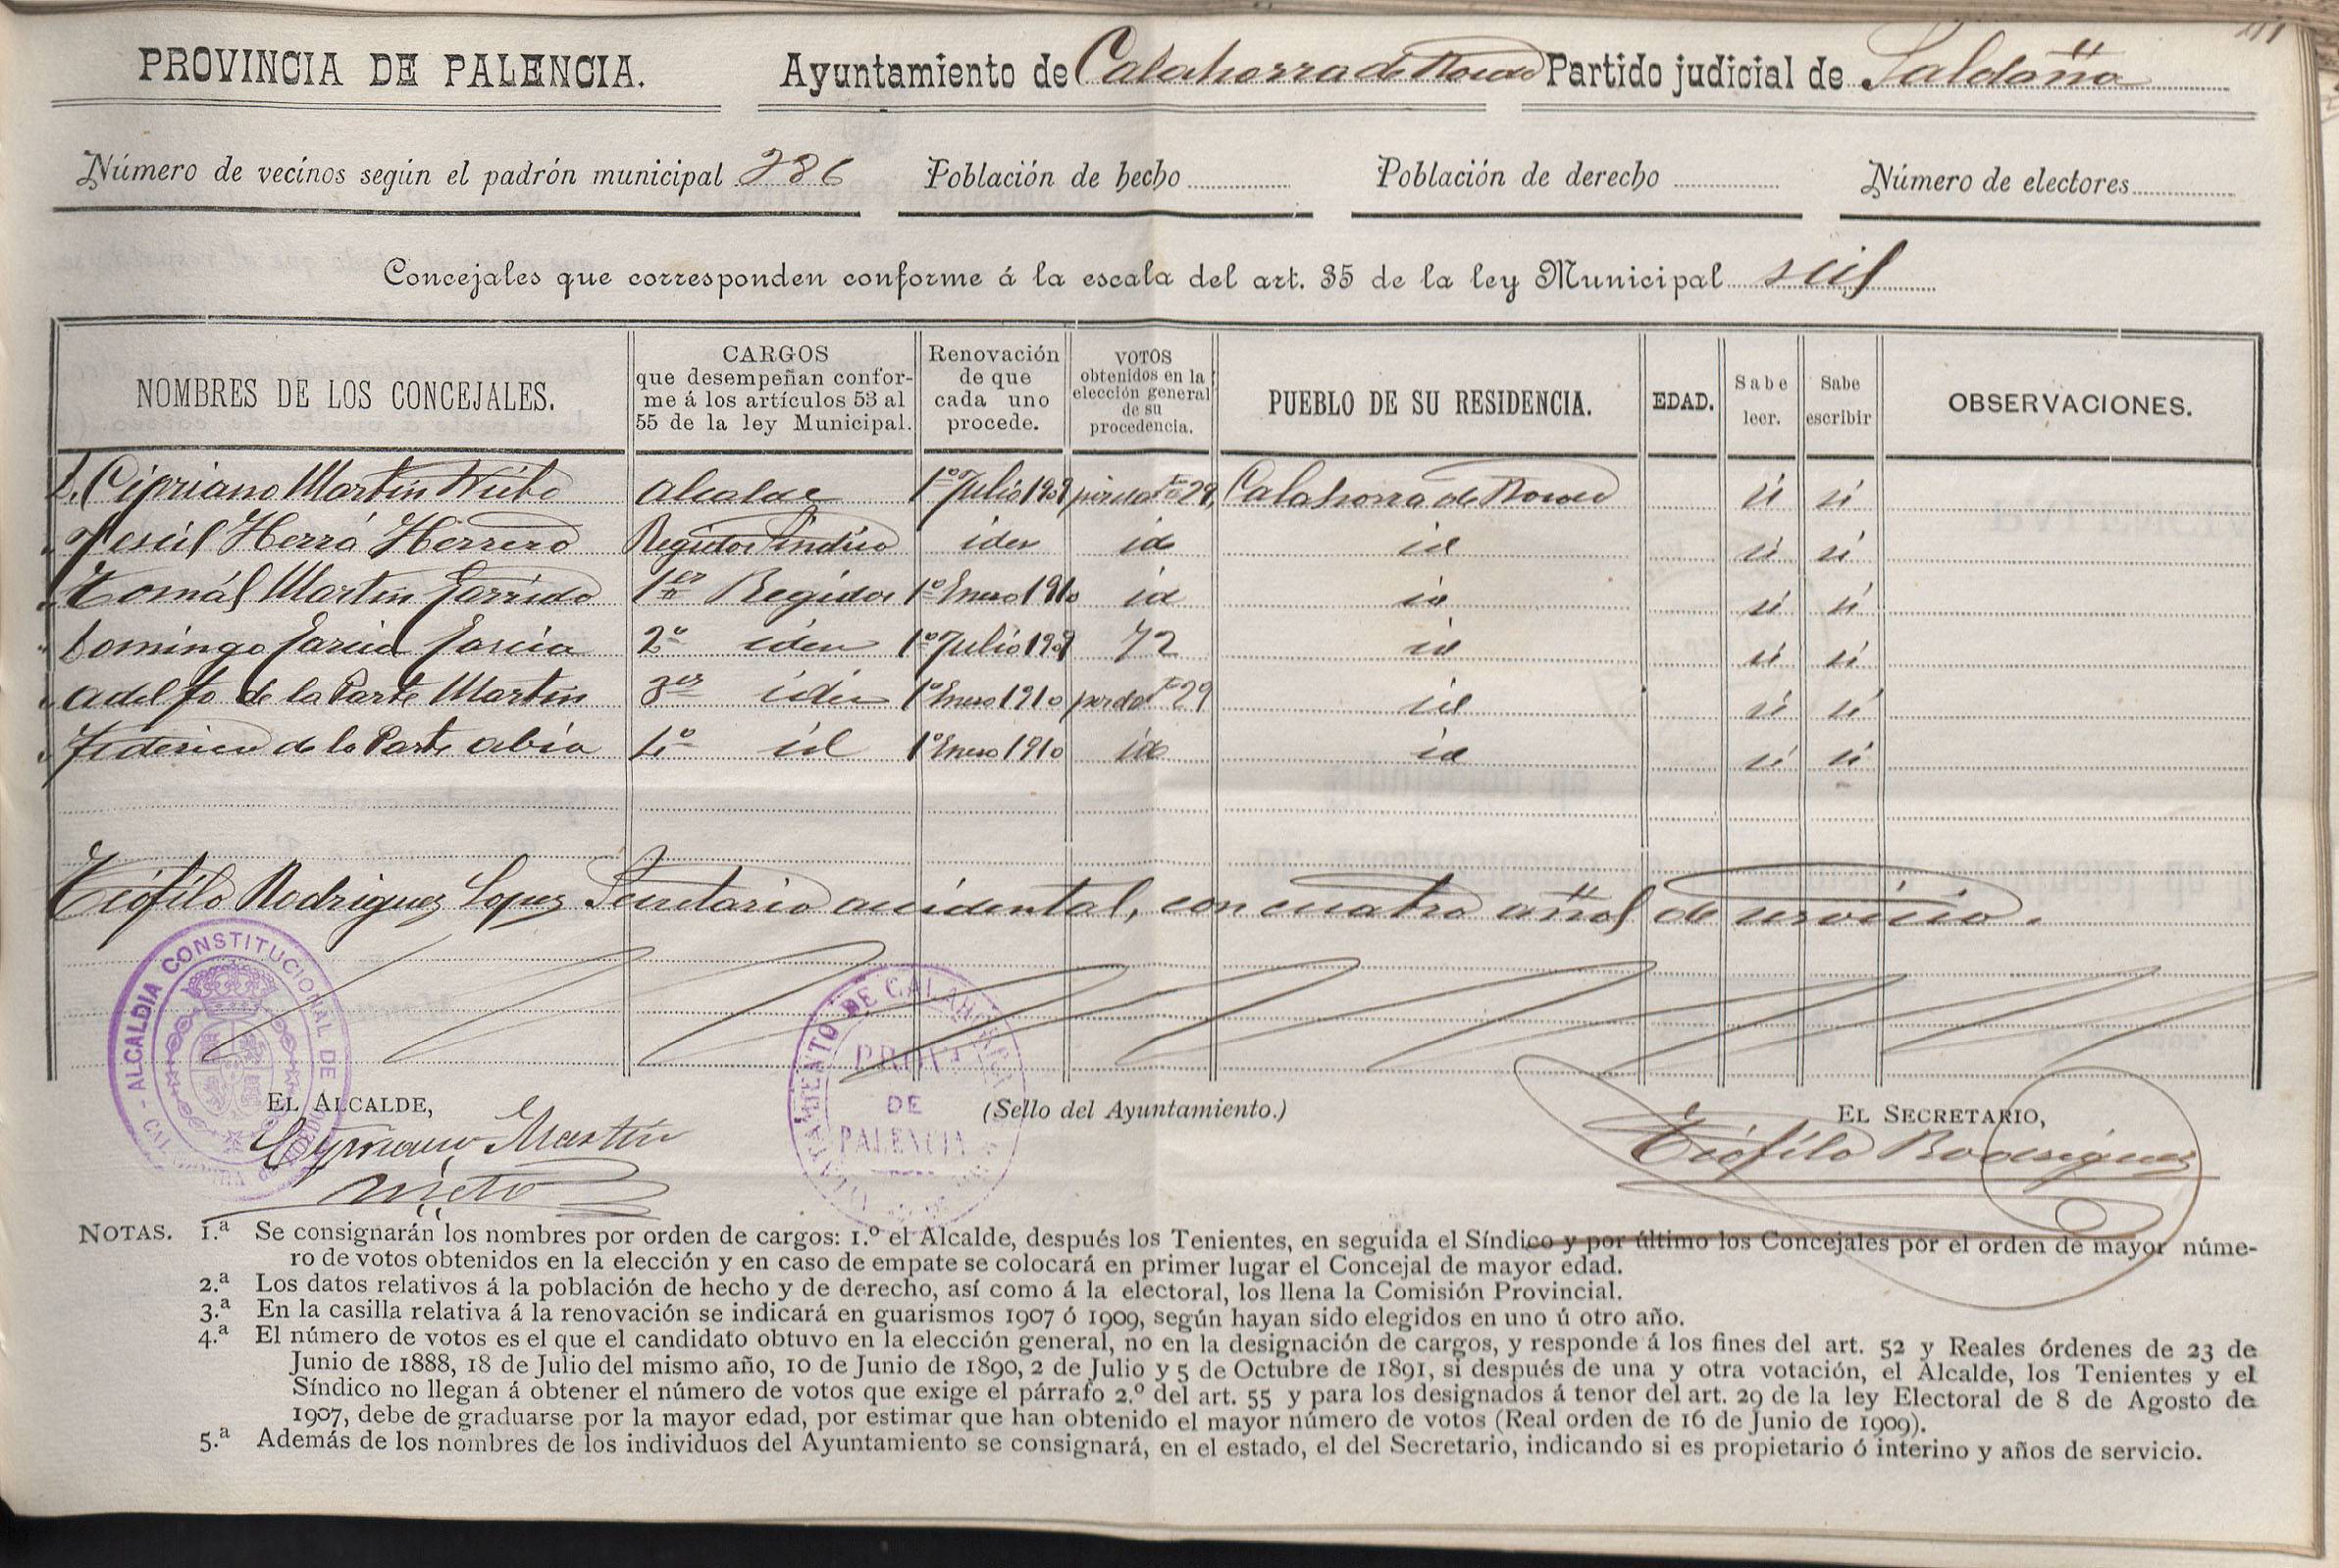 PROVINCIA DE PALENCIA. Ayuntamiento de Calahorra de Boedo Partido judicial de Saldaña
Número de vecinos según el padrón municipal 286 Población de hecho Población de derecho Número de electores
Concejales que corresponden conforme á la escala del art. 35 de la ley Municipal seis
NOMBRES DE LOS CONCEJALES. CARGOS que desempeñan conforme á los artículos 53 al 55 de la ley Municipal. Renovación de que cada uno procede. VOTOS obtenidos en la elección general de su procedencia. PUEBLO DE SU RESIDENCIA. EDAD. Sabe leer. Sabe escribir OBSERVACIONES.
D. Cipriano Martin Nieto Alcalde 1º Julio 1909 29 Calahorra de Boedo si si
" Jesús Herrá Herrero Regidor Sindico iden id id si si
" Tomás Martin Garrido 1er Regidor 1º Enero 1910 id id si si
" Domingo Garcia Garcia 2º iden 1º Julio 1909 72 id si si
" Adelfo de la Parte Martin 3er iden 1º Enero 1910 29 id si si
" Federico de la Parte Abia 4º id 1º Enero 1910 id id si si
Teófilo Rodriguez Lopez Secretario accidental, con cuatro años de servicio.
ALCALDIA CONSTITUCIONAL DE CALAHORRA DE BOEDO
AYUNTAMIENTO DE CALAHORRA DE BOEDO
PROVª
DE
PALENCIA
EL ALCALDE, (Sello del Ayuntamiento.) EL SECRETARIO,
Cipriano Martin Teófilo Rodriguez
Nieto
NOTAS. 1.ª Se consignarán los nombres por orden de cargos: 1.º el Alcalde, después los Tenientes, en seguida el Síndico y por último los Concejales por el orden de mayor núme-
ro de votos obtenidos en la elección y en caso de empate se colocará en primer lugar el Concejal de mayor edad.
2.ª Los datos relativos á la población de hecho y de derecho, así como á la electoral, los llena la Comisión Provincial.
3.ª En la casilla relativa á la renovación se indicará en guarismos 1907 ó 1909, según hayan sido elegidos en uno ú otro año.
4.ª El número de votos es el que el candidato obtuvo en la elección general, no en la designación de cargos, y responde á los fines del art. 52 y Reales órdenes de 23 de
Junio de 1888, 18 de Julio del mismo año, 10 de Junio de 1890, 2 de Julio y 5 de Octubre de 1891, si después de una y otra votación, el Alcalde, los Tenientes y el
Síndico no llegan á obtener el número de votos que exige el párrafo 2.º del art. 55 y para los designados á tenor del art. 29 de la ley Electoral de 8 de Agosto de
1907, debe de graduarse por la mayor edad, por estimar que han obtenido el mayor número de votos (Real orden de 16 de Junio de 1909).
5.ª Además de los nombres de los individuos del Ayuntamiento se consignará, en el estado, el del Secretario, indicando si es propietario ó interino y años de servicio.